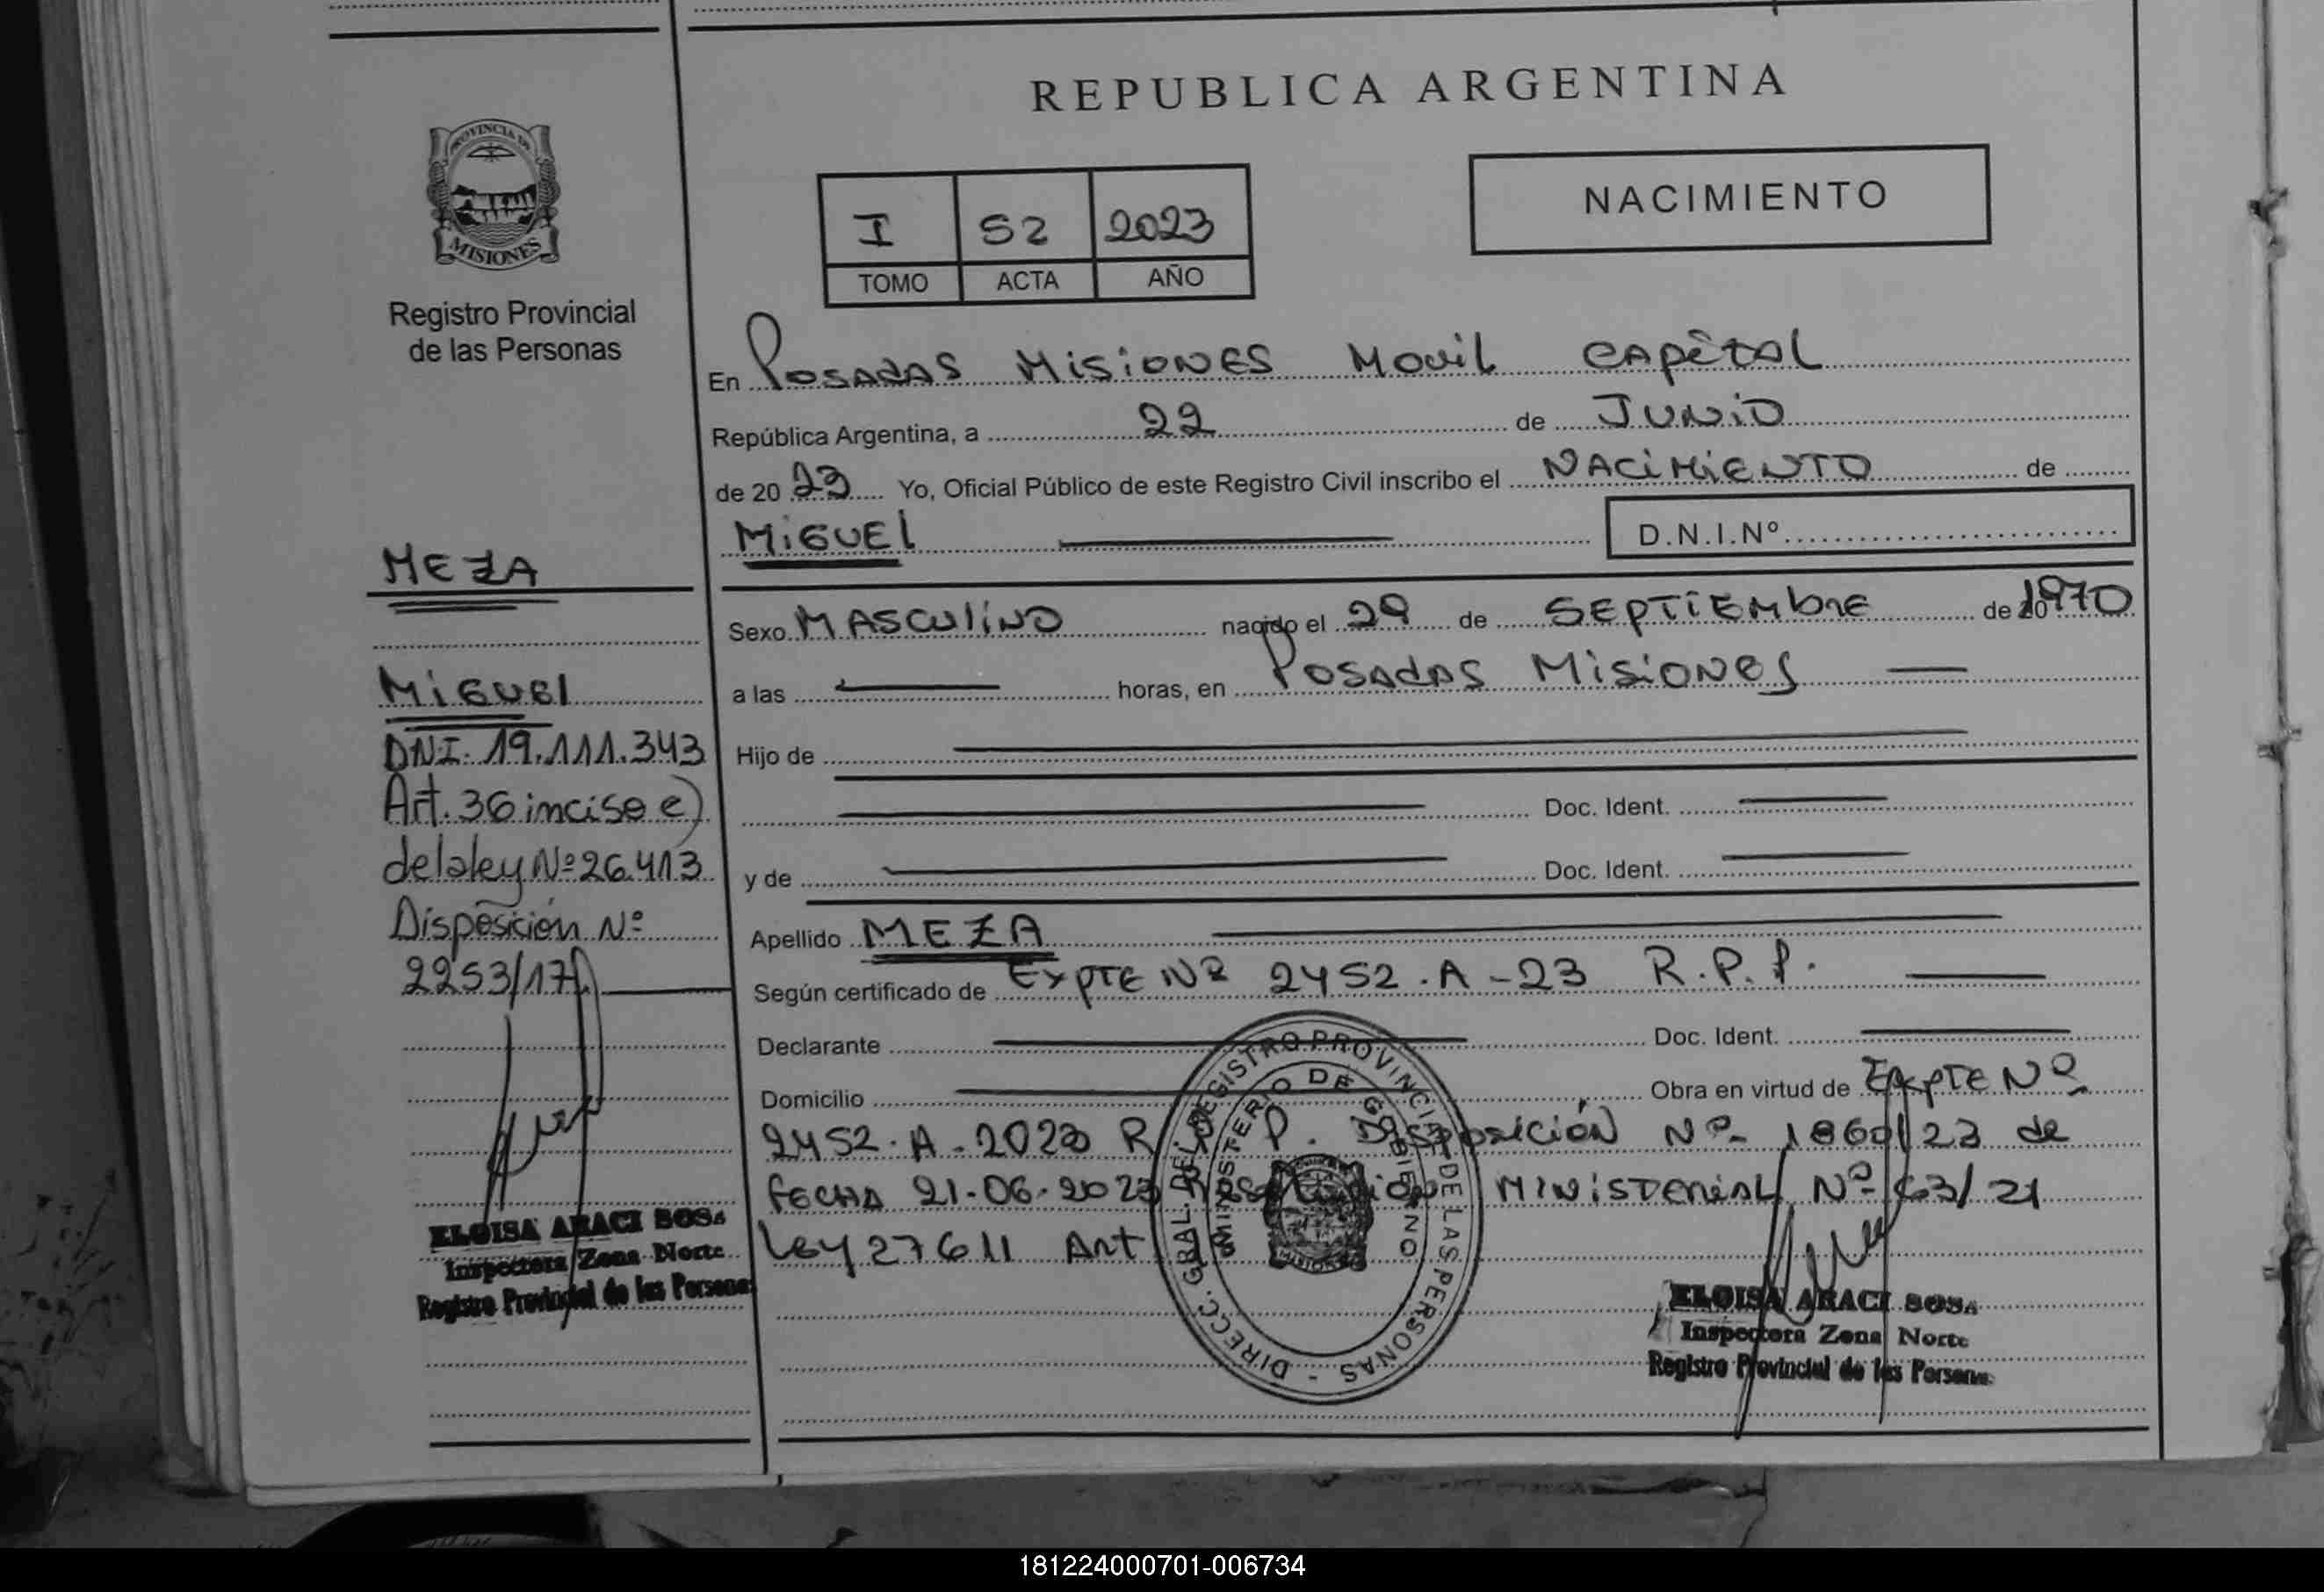 REPUBLICA ARGENTINA
PROVINCIA DE
MISIONES
Registro Provincial
de las Personas
NACIMIENTO
I 52 2023
TOMO ACTA AÑO
En Posadas Misiones Movil Capital
República Argentina, a 22 de Junio
de 20 23 Yo, Oficial Público de este Registro Civil inscribo el Nacimiento de
Miguel D.N.I.Nº
Sexo Masculino nacido el 29 de Septiembre de 1970
a las horas, en Posadas Misiones
Hijo de
Doc. Ident.
y de Doc. Ident.
Apellido MEZA
Según certificado de Expte Nº 2452.A-23 R.P.P.
Declarante Doc. Ident.
Domicilio Obra en virtud de Expte Nº
2452.A.2023 R.P.P. Disposición Nº 1860/23 de
fecha 21-06-2023 Resolución Ministerial Nº 63/21
Ley 27611 Art
MEZA
Miguel
DNI. 19.111.343
Art. 36 inciso e)
de la ley Nº 26.413
Disposición Nº
2253/17
ELOISA ARACI SOSA
Inspectora Zona Norte
Registro Provincial de las Personas
DIRECC. GRAL. DEL REGISTRO PROVINCIAL DE LAS PERSONAS -
MINISTERIO DE GOBIERNO
ELOISA ARACI SOSA
Inspectora Zona Norte
Registro Provincial de las Personas
181224000701-006734